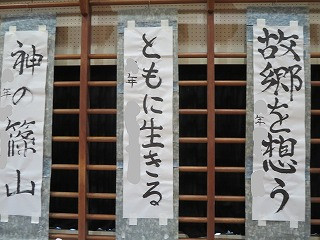 故郷を想う
年
ともに生きる
年
神の篠山
年